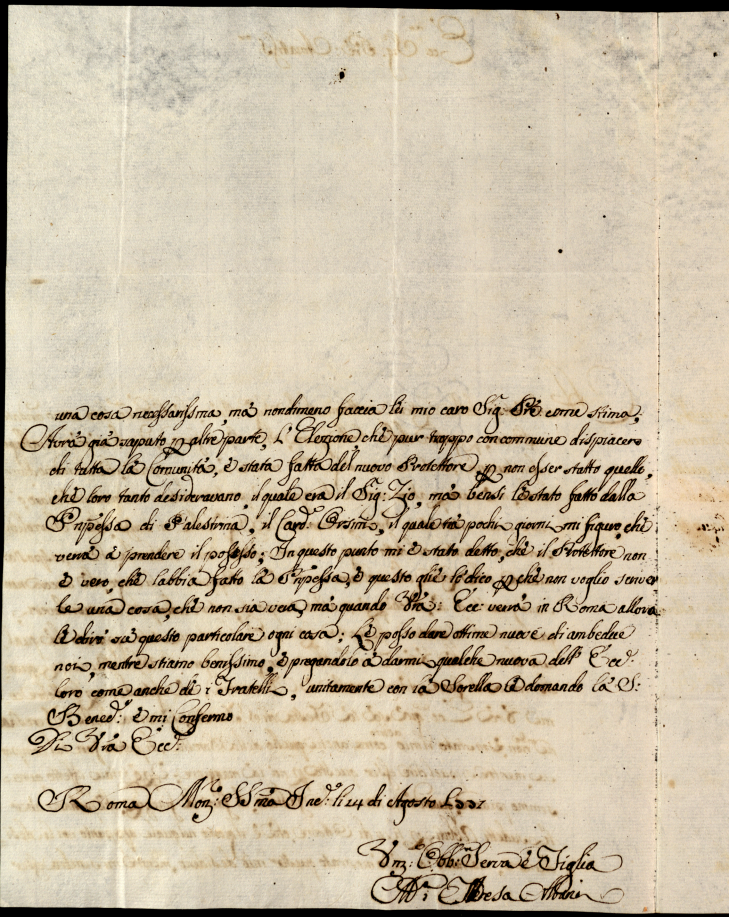 una cosa necessarissma, mà nondimeno faccia lei mio caro Sig: Pre come stima;
Avrà già saputo p altre parte, L'Elezzione che pur troppo con commune dispiacere
di tutta la Comunità, è stata fatta del nuovo Protettore, p non esser statto quello,
che loro tanto desideravano, il quale era il Sig: Zio, mà bensi lè stato fatto dalla
Pnpessa di Palestrina, il Card: Orsini, il quale trà pochi giorni mi figuro, che
verrà à prendere il possesso; In questo punto mi è stato detto, che il Protettore non
è vero, che labbia fatto la Pnpessa, è questo gliè lo dico p che non voglio scriver
le una cosa, che non sia vera, mà quando Vra: Ecc: verrà in Roma allora
le dirò sù questo particolare ogni cosa; Le posso dare ottime nuove di ambedue
noi, mentre stiamo benissimo, è pregandolo à darmi qualche nuova dell' Ecc:
loro come anche di i Fratelli, unitamente con la Sorella le domando la S:
Bened: è mi Confermo
Di Vra Ecc:
Roma Mon: SSma Ined: li 14 di Agosto
Obb: Serva è Figlia